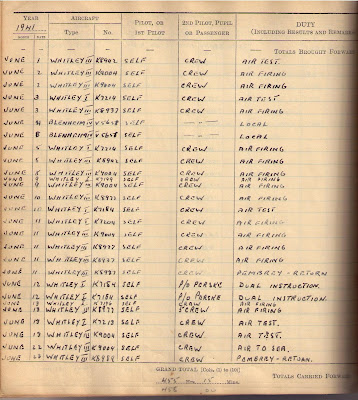 YEAR AIRCRAFT PILOT, OR 2ND PILOT, PUPIL DUTY
1941 Type No. 1ST PILOT OR PASSENGER (INCLUDING RESULTS AND REMARKS
MONTH DATE
TOTALS BROUGHT FORWARD
JUNE 1 WHITLEY III K8902 SELF CREW AIR TEST.
JUNE 2 WHITLEY III K9004 SELF CREW AIR FIRING
JUNE 2 WHITLEY I K7214 SELF CREW AIR FIRING
JUNE 3 WHITLEY I K7214 SELF CREW AIR TEST.
JUNE 3 WHITLEY III K8937 SELF CREW AIR FIRING
JUNE BLENHEIM IV V5658 SELF LOCAL
JUNE BLENHEIM IV V5658 SELF LOCAL
JUNE 5 WHITLEY I K7214 SELF CREW AIR FIRING
JUNE 5 WHITLEY III SELF CREW AIR FIRING
JUNE 8 WHITLEY III K9004 SELF CREW AIR FIRING
JUNE WHITLEY I SELF CREW AIR FIRING
JUNE 9 WHITLEY III K9004 SELF CREW AIR FIRING
JUNE 10 WHITLEY III K8937 SELF CREW AIR FIRING
JUNE WHITLEY I K7184 SELF CREW AIR TEST.
JUNE 11 WHITLEY I SELF CREW AIR FIRING
JUNE 11 WHITLEY III K9004 SELF CREW AIR FIRING
JUNE 11 WHITLEY III K8937 SELF CREW AIR FIRING
JUNE 11 WHITLEY III K8937 SELF CREW AIR FIRING
JUNE 11 WHITLEY III K8937 SELF CREW PEMBREY - RETURN
JUNE 12 WHITLEY I K7184 SELF P/O DUAL INSTRUCTION.
JUNE 12 WHITLEY I K7184 SELF P/O DUAL INSTRUCTION.
JUNE WHITLEY I SELF CREW AIR FIRING
JUNE 18 WHITLEY III K8937 SELF CREW AIR FIRING
JUNE 19 WHITLEY I K7213 SELF CREW AIR TEST.
JUNE 19 WHITLEY III K9004 SELF CREW AIR TEST.
JUNE WHITLEY III K9004 SELF CREW AIR TO SEA.
JUNE 22 WHITLEY III K8958 SELF CREW PEMBREY-RETURN.
GRAND TOTAL [Cols. (1) to (10)]
Hrs. Mins. TOTALS CARRIED FORWARD